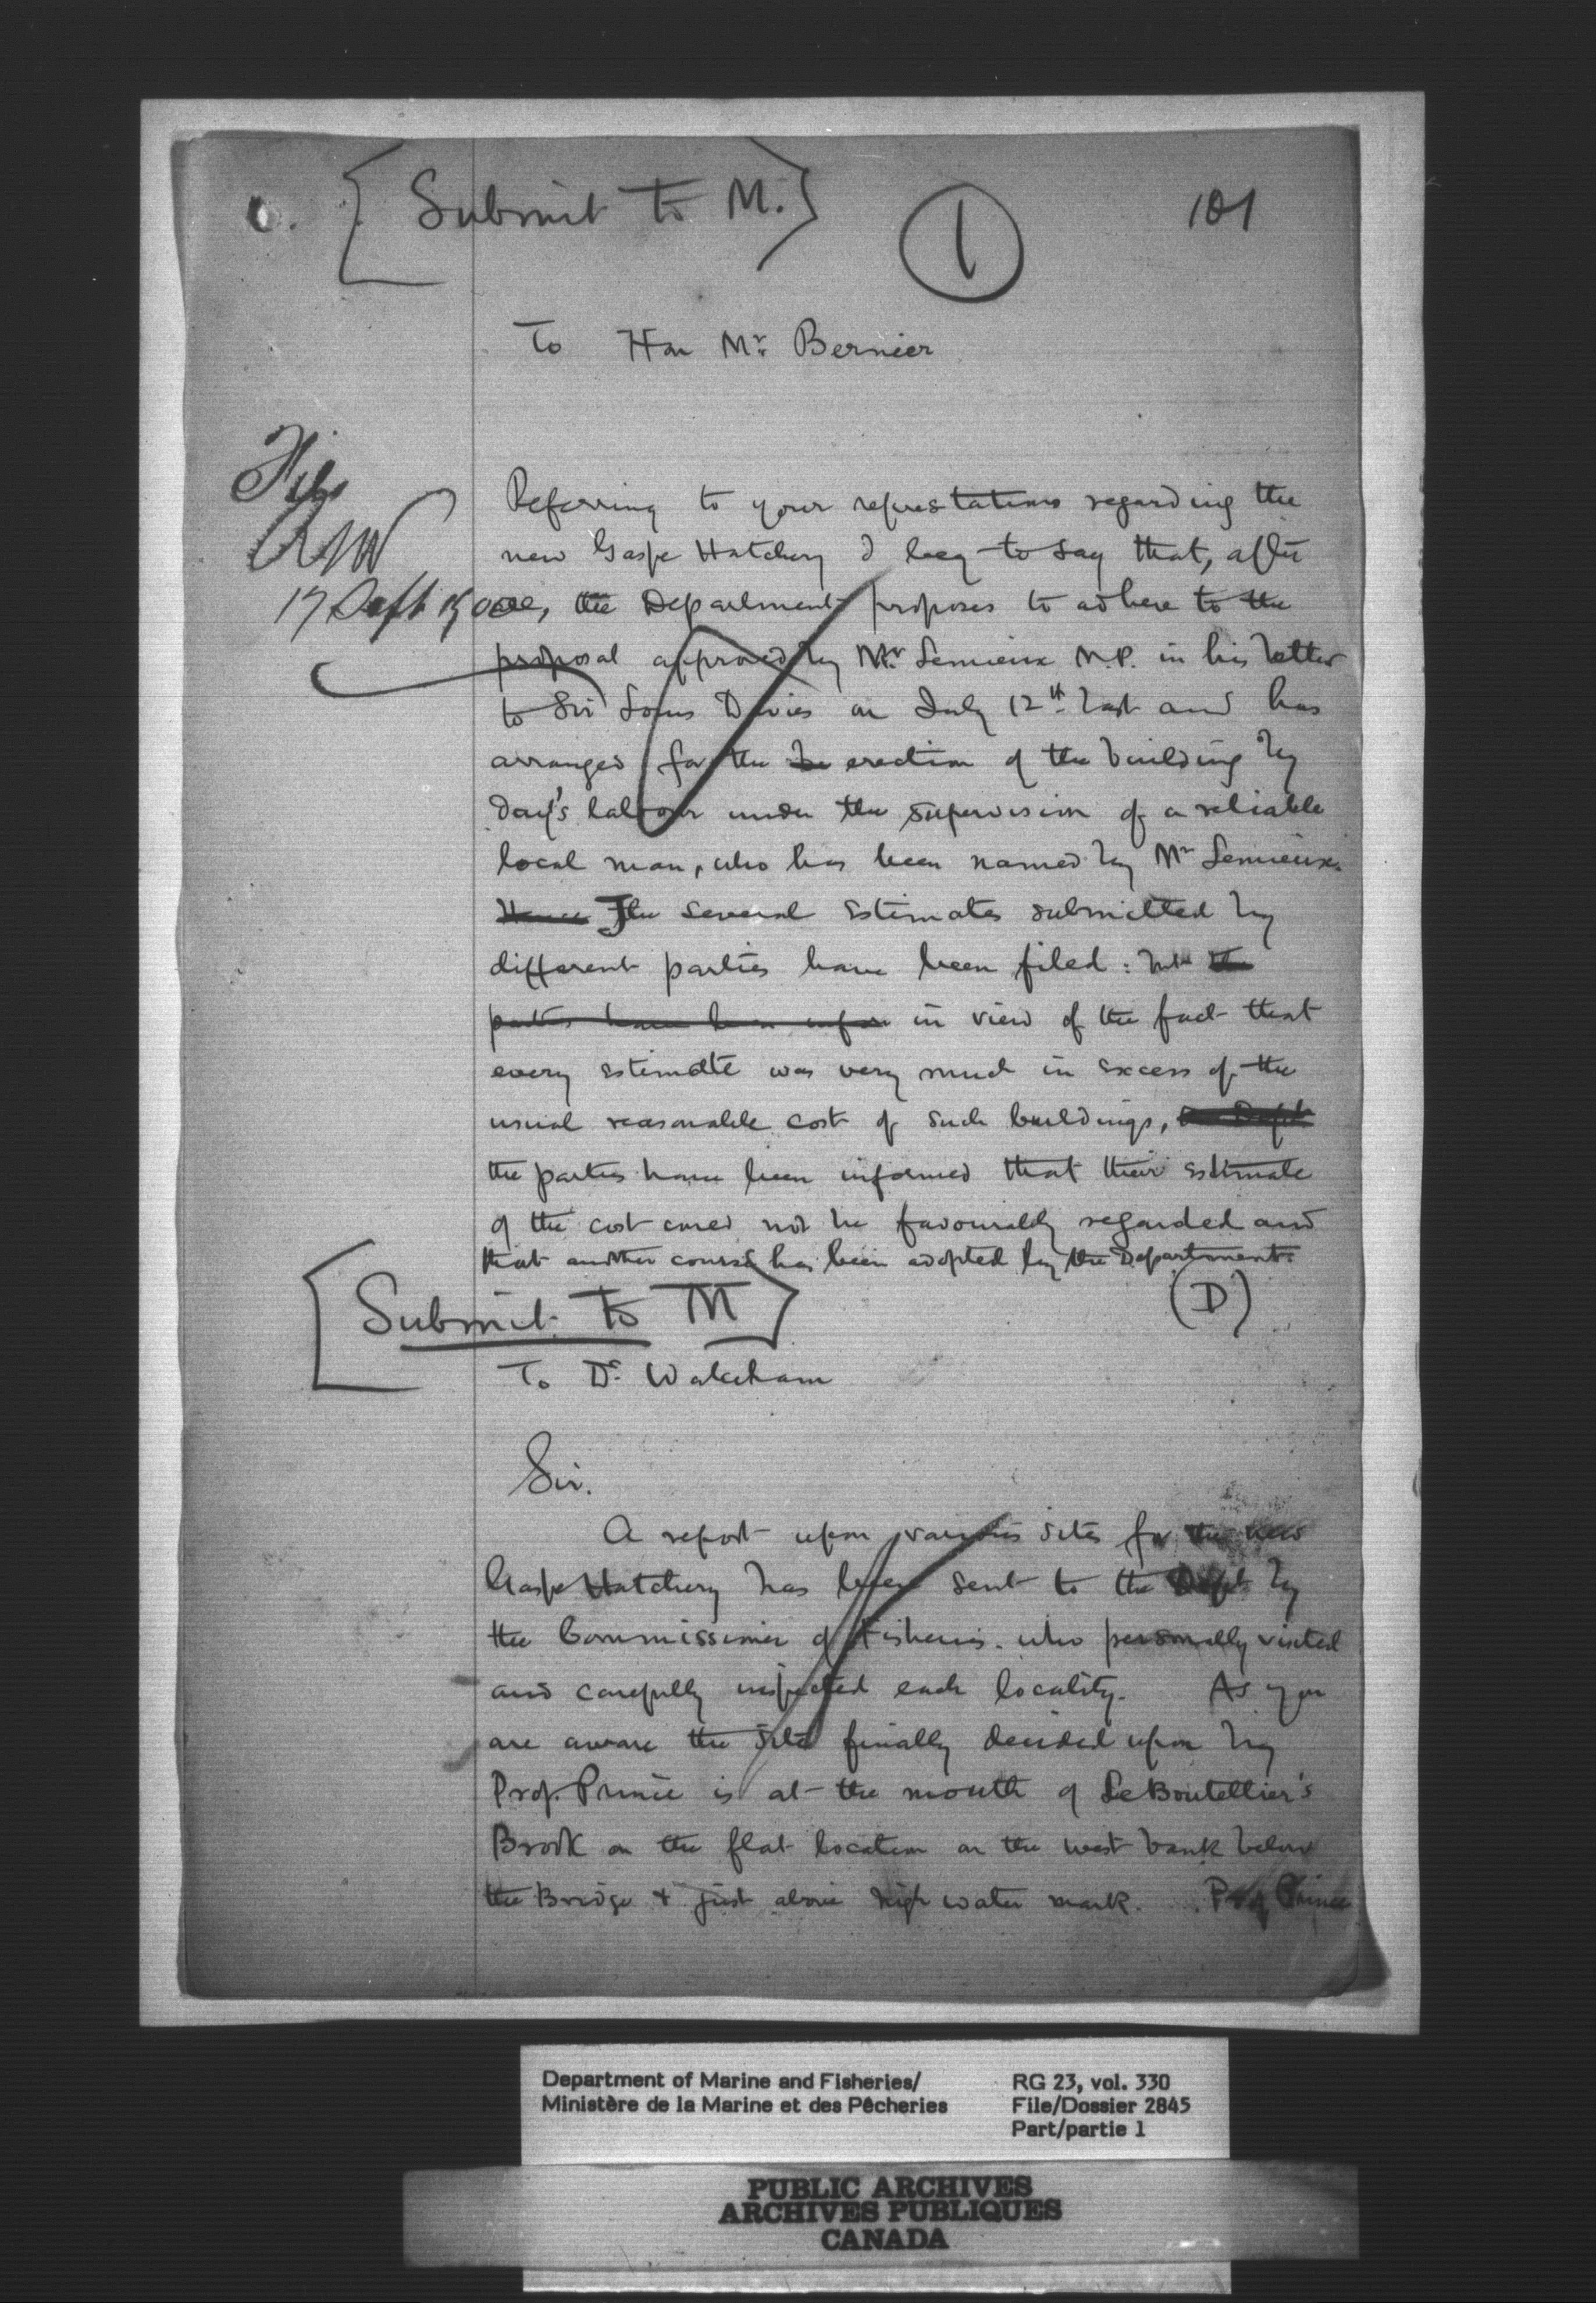 [Submit to M.]
1
101
To Hon Mr. Bernier
File
17 Sept 1900
Referring to your represtations regarding the
new Gaspe Hatchery I beg to say that, after
all, the Department proposes to adhere to the
proposal approved by Mr. Lemieux M.P. in his letter
to Sir Louis Davies on July 12th last and has
arranged for the be erection of the building by
day's labour under the supervision of a reliable
local man, who has been named by Mr Lemieux.
Hence The several estimates submitted by
different parties have been filed: but the
parties have been infor in view of the fact that
every estimate was very much in excess of the
usual reasonable cost of such buildings, Dept
the parties have been informed that their estimate
of the cost could not be favourably regarded and
that another course has been adopted by the Department.
(D)
[Submit to M]
To Dr. Wakeham
Sir.
A report upon various sites for the new
Gaspe Hatchery has been sent to the Dept by
the Commissioner of Fisheries. who personally visited
and carefully inspected each locality. As you
are aware the site finally decided upon by
Prof. Prince is at the mouth of LeBoutellier's
Brook on the flat location on the west bank below
the Bridge + just above high water mark. Prof Prince
Department of Marine and Fisheries/
Ministère de la Marine et des Pêcheries
RG 23, vol. 330
File/Dossier 2845
Part/partie 1
PUBLIC ARCHIVES
ARCHIVES PUBLIQUES
CANADA